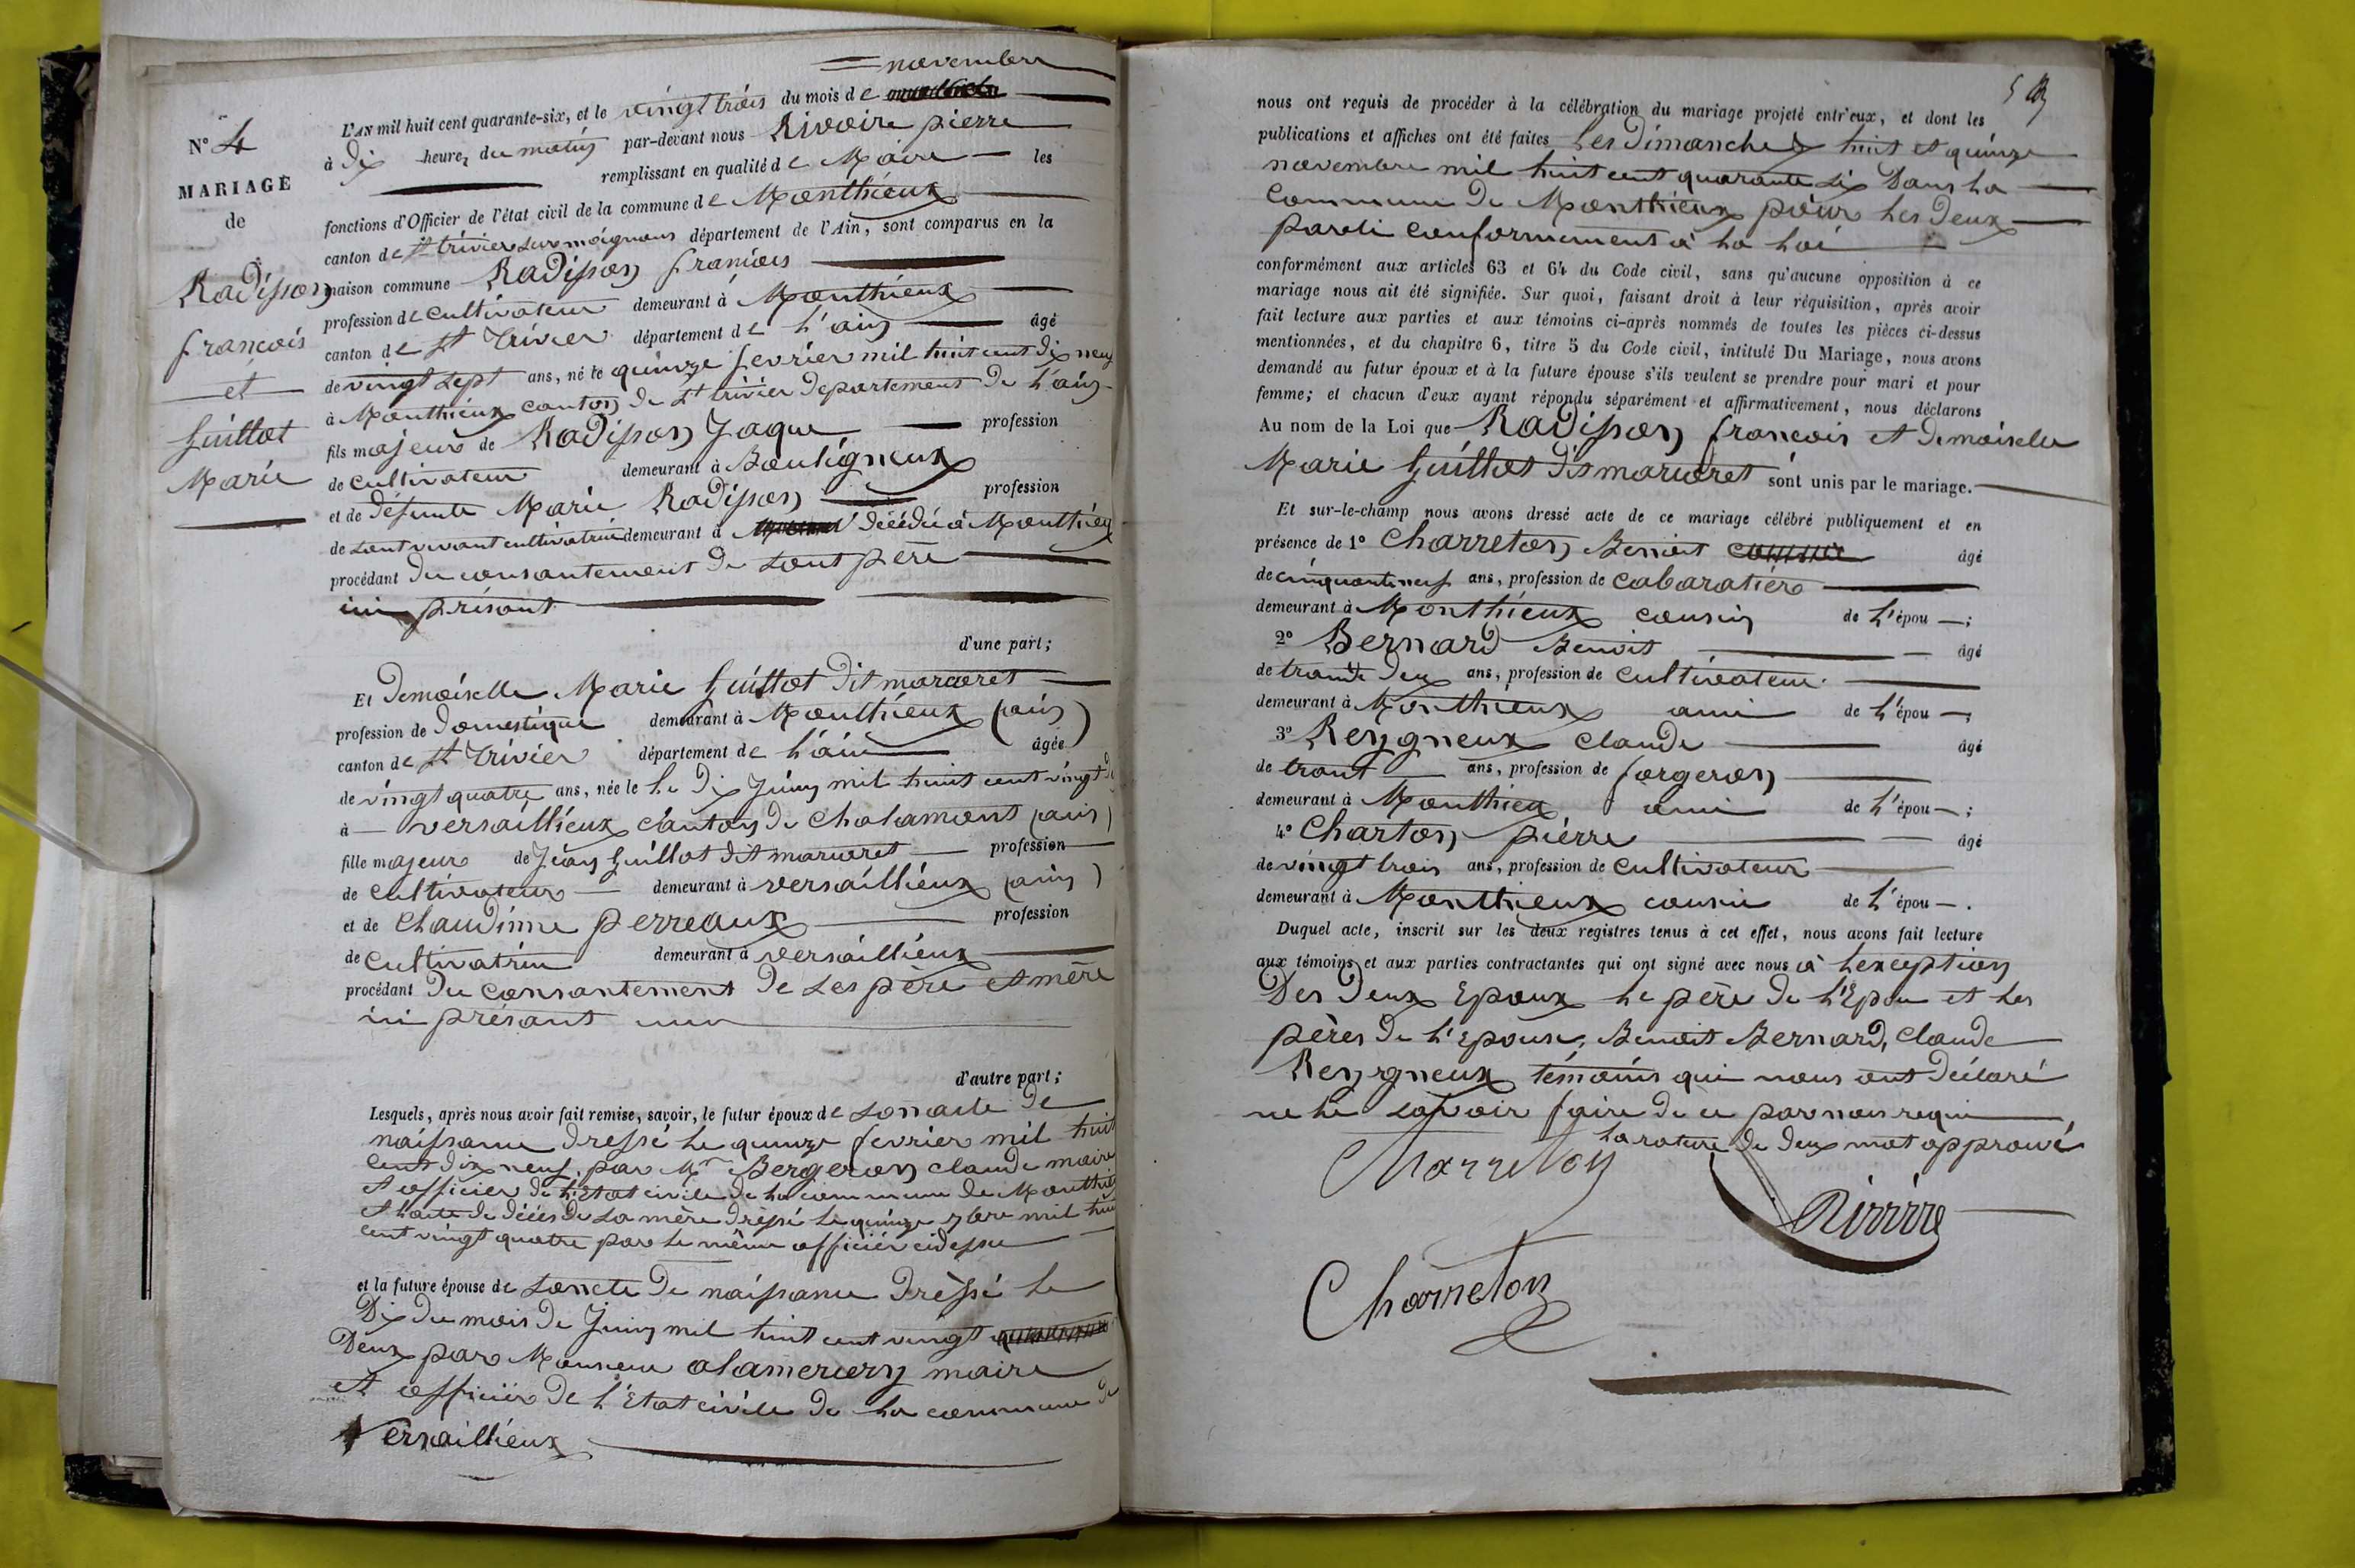 novembre
N° 4
MARIAGE
de
Radisson
françois
et
Guillot
Marie
L'AN mil huit cent quarante-six, et le vingt trois du mois de
à dix heures du matin par-devant nous Rivoire pierre
remplissant en qualité de Maire les
fonctions d'Officier de l'état civil de la commune de Monthieux
canton de St trivier sur moignans département de l'Ain, sont comparus en la
maison commune Radisson françois
profession de cultivateur demeurant à Monthieux
canton de St Trivier département de l'ain âgé
de vingt sept ans, né le quinze fevrier mil huit cent dix neuf
à Monthieux canton de St trivier departement de l'ain
fils majeur de Radisson Jaque profession
de cultivateur demeurant à Bouligneux
et de défunte Marie Radisson profession
de sont vivant cultivatrice demeurant à décédée à Monthieux
procédant du consantement de sont père
ici présant
d'une part;
Et demoiselle Marie Guillot dit marcoret
profession de domestique demeurant à Monthieux (ain)
canton de St Trivier département de l'ain âgée
de vingt quatre ans, née le le dix Juin mil huit cent vingt
à versaillieux canton de Chalamont (ain)
fille majeure de Jean Guillot dit marcoret profession
de cultivateur demeurant à versaillieux (ain)
et de Claudinne perreaux profession
de cultivatrice demeurant à versaillieux
procédant du consantement de ses père et mère
ici présant
d'autre part;
Lesquels, après nous avoir fait remise, savoir, le futur époux de son acte de
naissance dressé le quinze fevrier mil huit
cent dix neuf par Mr Bergeron claude maire
et officier de l'Etat civile de la commune de Monthieux
et l'acte de décès de sa mère dressé le quinze 9bre mil huit
cent vingt quatre par le même officier ci dessu
et la future épouse de soncte de naissance dressé le
Dix du mois de Juin mil huit cent vingt
Deux par Monsieur alamercery maire
et officier de l'Etat civile de la commune de
versaillieux
nous ont requis de procéder à la célébration du mariage projeté entr'eux, et dont les
publications et affiches ont été faites les dimanches huit et quinze
novembre mil huit cent quarante six Dans la
Commune de Monthieux pour les deux
parti conformement à la loi
conformément aux articles 63 et 64 du Code civil, sans qu'aucune opposition à ce
mariage nous ait été signifiée. Sur quoi, faisant droit à leur réquisition, après avoir
fait lecture aux parties et aux témoins ci-après nommés de toutes les pièces ci-dessus
mentionnées, et du chapitre 6, titre 5 du Code civil, intitulé Du Mariage, nous avons
demandé au futur époux et à la future épouse s'ils veulent se prendre pour mari et pour
femme; et chacun d'eux ayant répondu séparément et affirmativement, nous déclarons
Au nom de la Loi que Radisson francois et demoiselle
Marie Guillot dit marcoret sont unis par le mariage.
Et sur-le-champ nous avons dressé acte de ce mariage célébré publiquement et en
présence de 1° Charreton Benoit âgé
de cinquante neuf ans, profession de cabaratier
demeurant à Monthieux cousin de l'épou ;
2° Bernard Benoit âgé
de trante deux ans, profession de cultivateur
demeurant à Monthieux ami de l'épou ;
3° Reygneux claude âgé
de trant ans, profession de forgeron
demeurant à Monthieu ami de l'épou ;
4° Charton pierre âgé
de vingt trois ans, profession de cultivateur
demeurant à Monthieux cousin de l'épou .
Duquel acte, inscrit sur les deux registres tenus à cet effet, nous avons fait lecture
aux témoins et aux parties contractantes qui ont signé avec nous à l'exception
Des deux Epoux le père de l'Epou et les
pères de l'Epouse, Benoit Bernard, Claude
Reygneux témoins qui nous ont déclaré
ne le savoir faire de ce par nous requi
la rature de deux mot approuvé
Charreton
Rivoire
Charreton